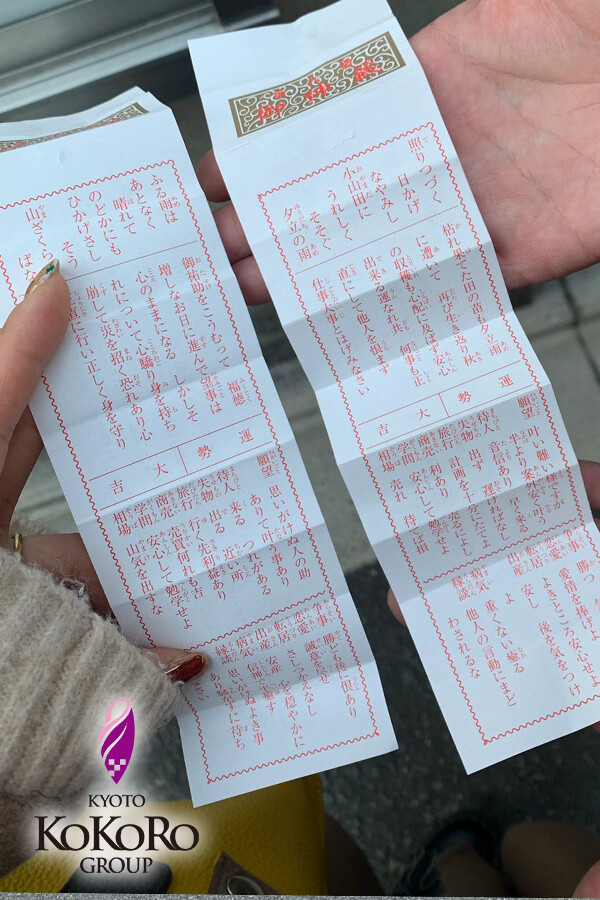 御神籤
照りつづく
日かげ
なやみし
小山田に
うれしく
そそぐ
夕立の雨
に遭いて再び生き返り秋
の収穫も心配に及ばず安心
出来る運なれ共 何事も正
直にして他人を
仕事大事とはげみなさい
運勢 大吉
願望 叶い難い様ですが
半より安く叶う
待人 音信あり 来る
失物 出ず
旅行 計画を十
商売 利あり
学問 安心して勉
相場 売れ 待て
争事 勝つ 心安せよ
恋愛 愛情を捧げよ
転居 よきところ
出産 安し 後を気をつけ
よ
病気 重くない 癒る
縁談 他人の言動にまど
わされるな
ふる雨は
あとなく
晴れて
のどかにも
ひかげさし
そう
山ざくらばな
御祐助をこうむって 福徳
増しなお日に進んで望事は
心のままになる しかしそ
れについて心驕り 身を持ち
崩して災を招く恐れあり心
直に行い正しく身を守り
運勢 大吉
願望 思いがけぬ人の助
ありて叶う事あり
待人 来る つれがある
失物 出る 近い所
旅行 行く先利益あり
商売 売買何れも吉
学問 安心して勉学せよ
相場 山気を出すな
争事 勝と後に恨あり
恋愛 誠意を
転居 さしつかえなし
出産 安産 心を穏やかに
病気 信神 癒す
縁談 思わぬよき事
あり 静に待ち
なさい
KYOTO
KoKoRo
GROUP